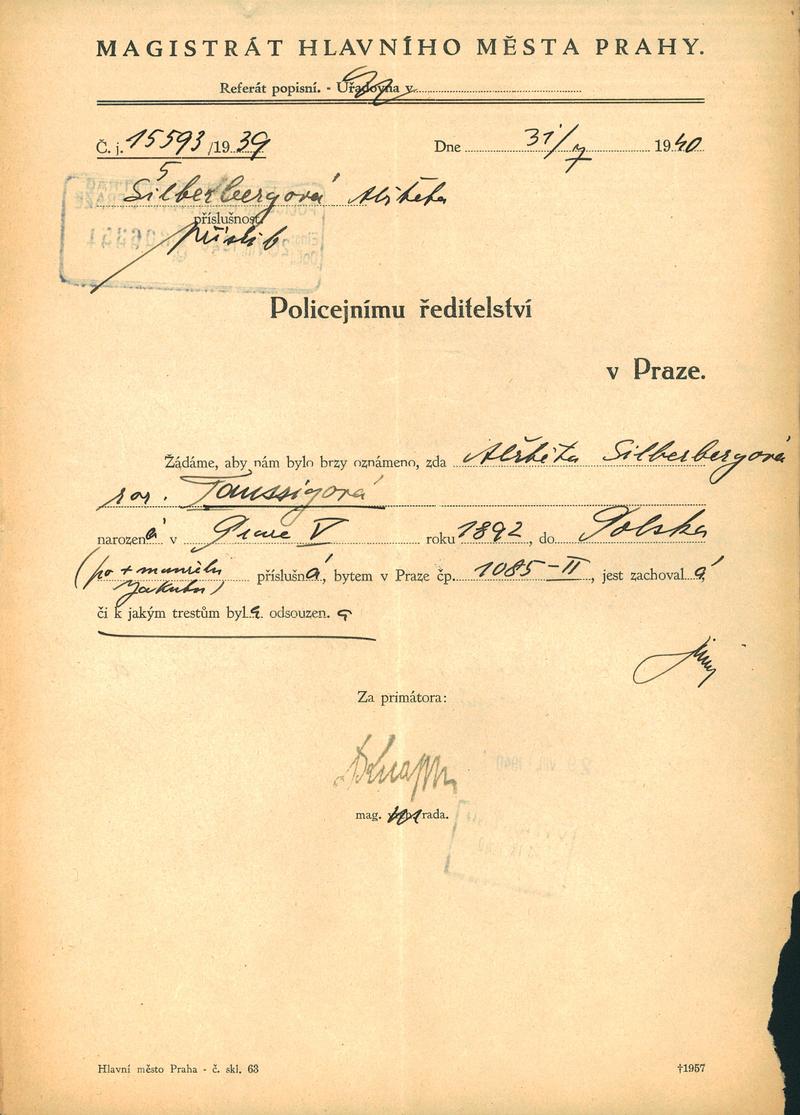 MAGISTRÁT HLAVNÍHO MĚSTA PRAHY.
Referát popisní. - Úřadovna v
Č. j. 15593/1939
Dne 31/7 1940
5
Silberbergová Alžběta
příslušnost
příslib
Policejnímu ředitelství
v Praze.
Žádáme, aby nám bylo brzy oznámeno, zda Alžběta Silberbergová
roz. Taussigová
narozená v Praze V roku 1892, do Polska
(po + manželu příslušná, bytem v Praze čp. 1085-II, jest zachovalá
Jakubu)
či k jakým trestům byla odsouzena
Za primátora:
Knapp
mag. rada.
Hlavní město Praha - č. skl. 63
†1957